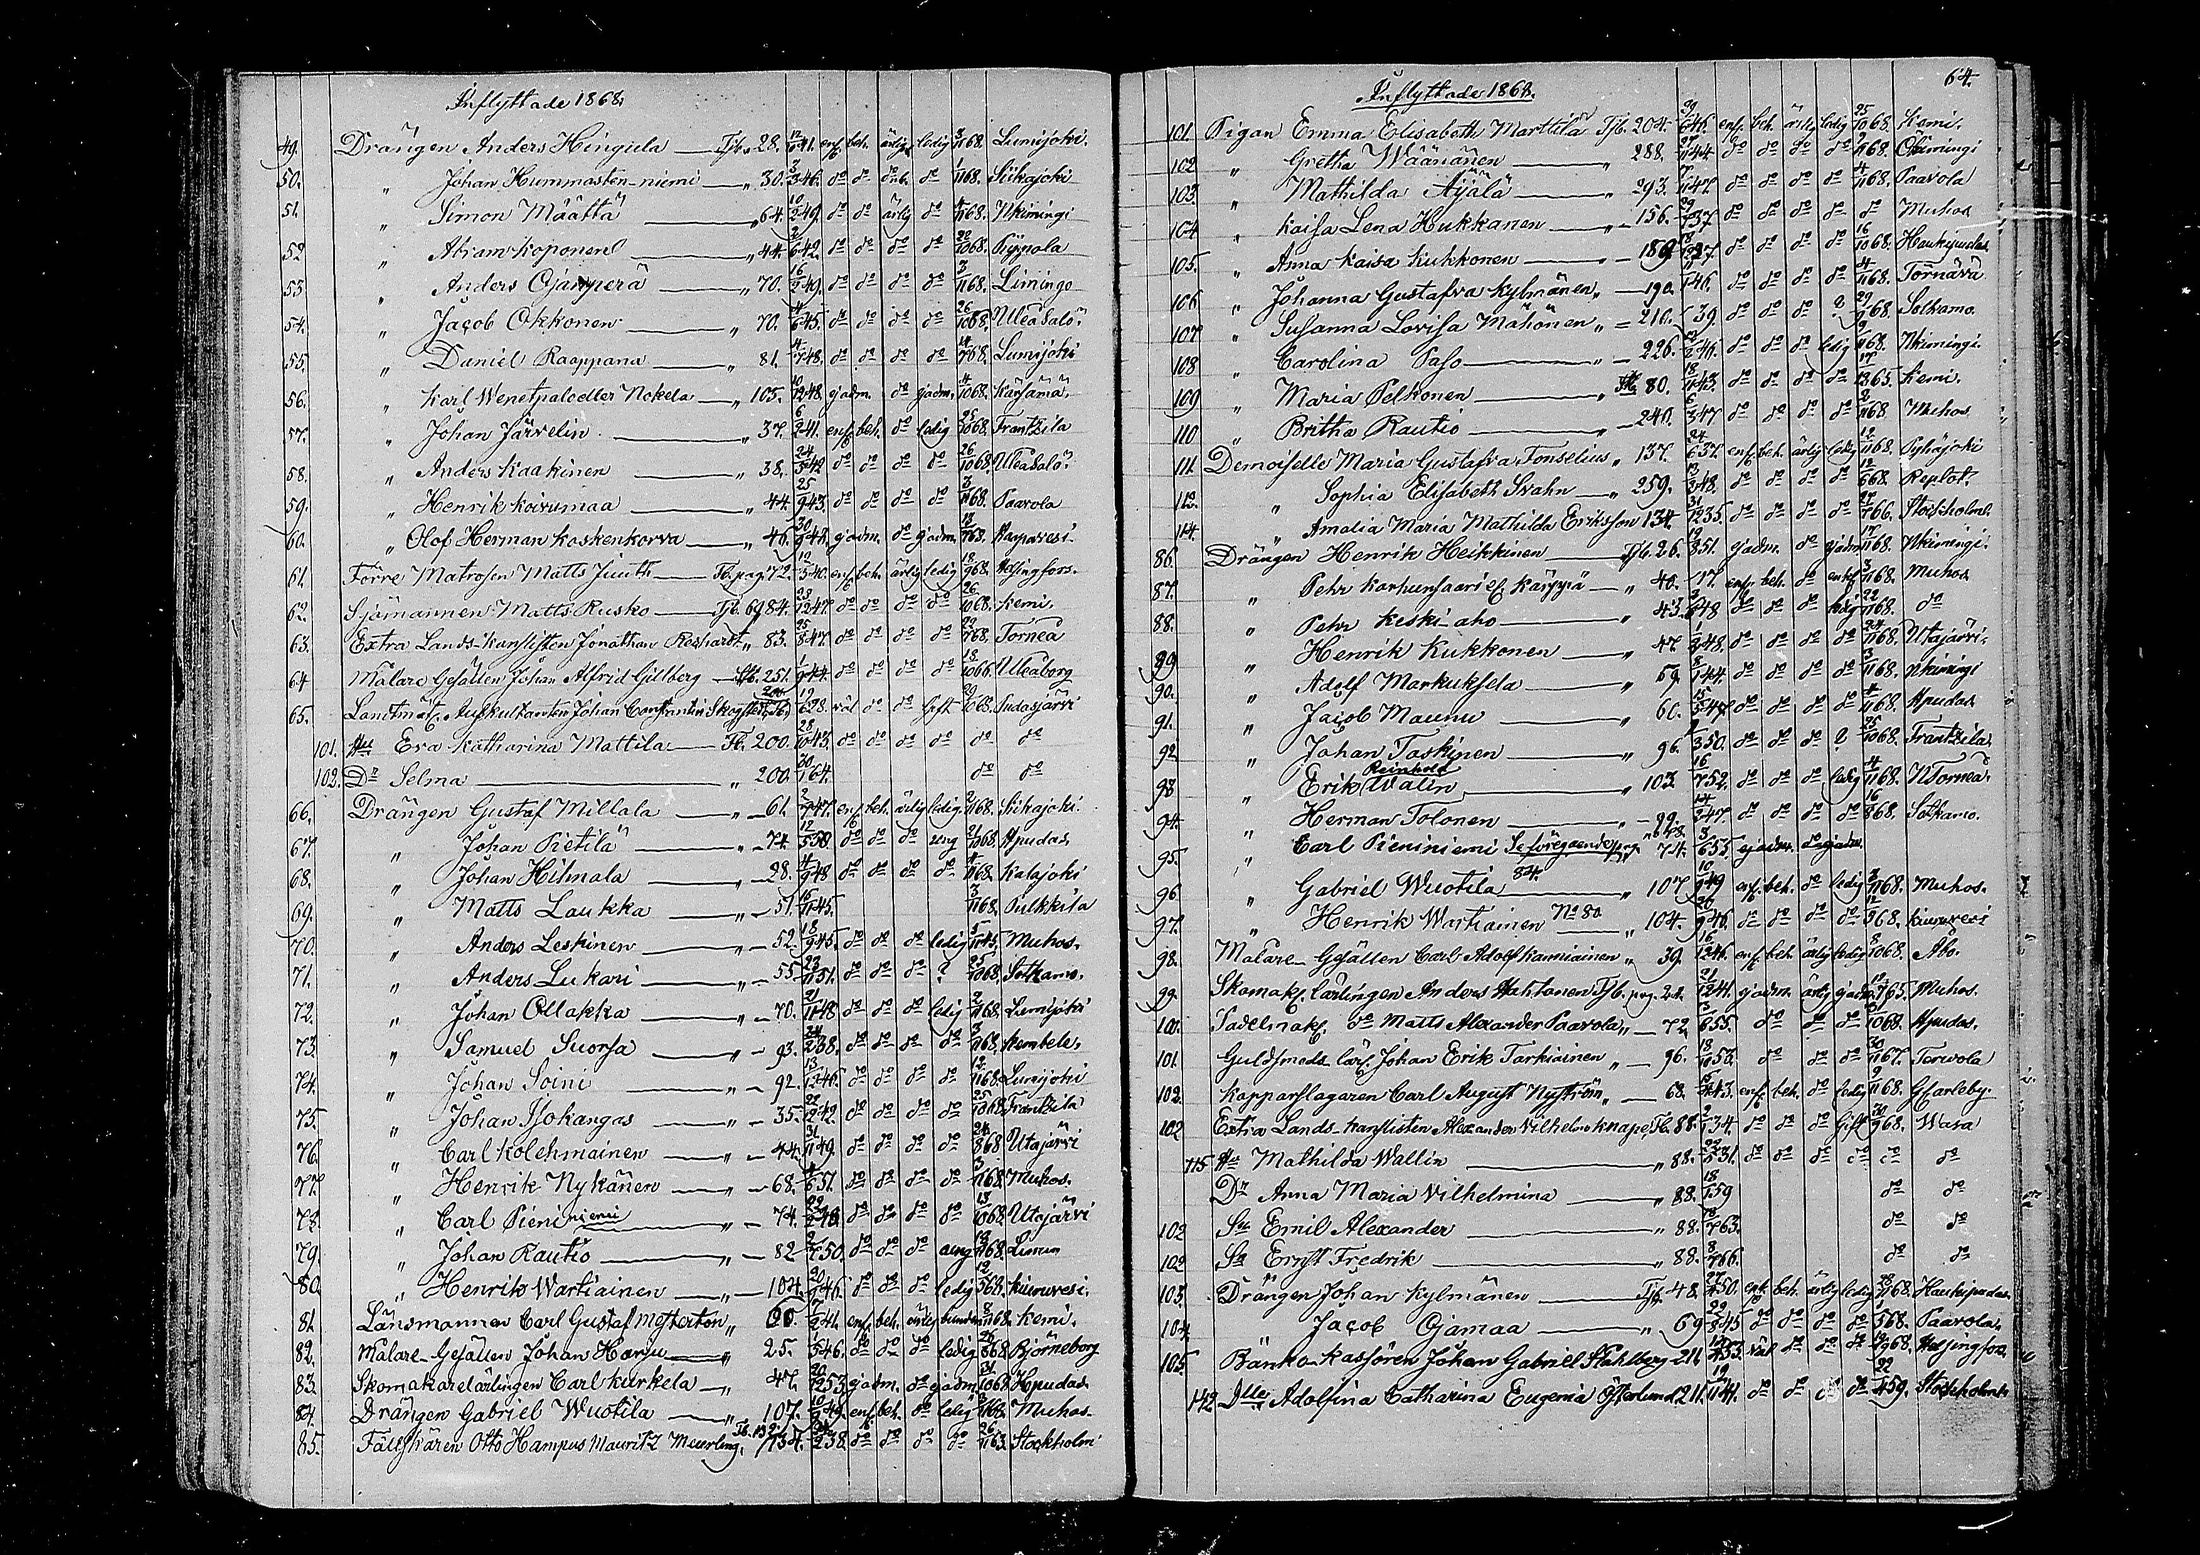 Inflyttade 1868.
49. Drängen Anders Hingula Tjb. 28. 12/11 41. enf. beh. ärlig ledig 3/11 68. Lumijoki.
50. " Johan Hummasten-niemi " 30. 2/3 46. do do do do 1/11 68. Siikajoki
51. " Simon Määttä " 64. 10/2 49. do do ärlig do 4/11 68. Nkiiminki
52 " Abram Koponen " 44. 2/6 42. do do do do 22/10 68. Pyynola
53 " Anders Ojanperä " 70. 16/2 49. do do do do 3/11 68. Limingo
54. " Jacob Okkonen " 70. 4/6 45. do do do do 26/10 68. Uleåsalo
55. " Daniel Raappana " 81. 4/7 48. do do do do 14/7 68. Lumijoki
56. " Karl Wenetpalo eller Nokela " 105. 10/12 48. ej adm. do ej adm. 4/10 68. Kärsämä
57. " Johan Järvelin " 37. 6/2 41. enf. beh. do ledig 25/10 68. Frantzila
58. " Anders Kaakinen " 38. 24/3 42 do do do do 26/10 68. Uleåsalo
59. " Henrik Koivumaa " 44. 25/9 43. do do do do 3/11 68. Paavola
60. " Olof Herman Koskenkorva " 46. 30/9 48. ej adm. do ej adm. 12/7 68. Haapavesi
61. Förre Matrosen Matts Juuth Tb. pag. 72. 12/5 40. enf. beh. ärlig ledig 18/9 68. Helsingfors.
62. Sjömannen Matts Rusko Tjb. 84. 23/12 47. do do do do 26/10 68. Kemi.
63. Extra Lands-kanslisten Jonathan " 83. 25/8 47. do do do do 29/7 68. Torneå
64 Målare Gesällen Johan Alfrid Gillberg 251. 1/9 44. do do do do 18/10 66. Uleåborg
65. Landtmät. Auskultanten Johan Constantin 200 19/6 28. väl do do gift 29/10 68. Pudasjärvi
101. Hu Eva Katharina Mattila Tb. 200. 28/10 43. do do do do do do
102. Dr Selma " 200. 20/1 64. do do
66. Drängen Gustaf Millala " 61. 2/7 47. enf. beh. ärlig ledig. 2/11 68. Siikajoki
67. " Johan Pietilä " 74. 12/5 50 do do do ung 21/10 68. Hpudas
68. " Johan Hilmala " 28. 4/9 48 do do do do 4/11 68. Kalajoki
69. " Matts Laukka " 51. 15/11 45. 3/11 68. Pulkkila
70. " Anders Leskinen " 52. 18/9 45. do do do ledig 5/11 45. Muhos.
71. " Anders Lukari " 55. 23/11 51. do do do ? 25/10 68. Sotkamo.
72. " Johan Ollakka " 70. 21/11 48 do do do ledig 2/11 68. Lumijoki
73. " Samuel Suorsa " 93. 24/2 38. do do do do 3/11 68. Kembele.
74. " Johan Soini " 92. 13/12 46. do do do do 12/11 68. Lumijoki
75. " Johan Isokangas " 35. 22/2 42. do do do do 25/10 68. Frantzila
76. " Carl Kolehmainen " 44. 31/1 49. do do do do 24/8 68 Utajärvi
77. " Henrik Nykänen " 68. 4/6 51. do do do do 3/11 68 Muhos.
78. " Carl Pieniniemi " 74. 22/2 48. do do do do 13/10 68. Utajärvi
79. " Johan Rautio " 82 2/7 50. do do do ung 13/11 68.
80. " Henrik Wartiainen " 104. 20/9 46. do do do ledig 12/5 68. Kiuruvesi.
81. Länsmannen Carl Gustaf " 65. 7/2 41. enf. beh. 8/11 68. Kemi.
82. Målare-Gesällen Johan Harju " 25. 1/5 46. do do do ledig 26/8 68 Björneborg
83. Skomakarelärlingen Carl Kurkela " 47. 20/12 53. ej adm. do ej adm. 31/10 68. Hpudas.
84. Drängen Gabriel Wuotila " 107. 10/9 49. enf. beh. do ledig 3/11 68. Muhos.
85. Otto Hampus Mauritz Tb. 132. 134. 2 38. do do do do 26/11 63. Stockholm
64.
Inflyttade 1868.
101. Pigan Emma Elisabeth Marttila Tjb. 204. 29/6 46. enf. beh. ärlig ledig 25/10 68. Kemi.
102 " Gretha Wäänänen " 288. 27/11 44. do do do do 9/11 68.
103. " Mathilda Äijälä " 293. 7/11 47. do do do do 4/11 68. Paavola
104 " Kaisa Lena Hukkanen " 156. 29/7 37 do do do do do Muhos
105. " Anna Kaisa Kukkonen " 189. 18/12 27. do do do do 16/10 68. Haukipudas
106 " Johanna Gustafva Kylmänen " 190. 11/1 46. do do do do 4/11 68. Törnävä
107 " Susanna Lovisa Mähönen " 210. 39. do do do ? 29/9 68. Sotkamo.
108 " Carolina Paso " 226. 12/2 46. do do do ledig 9/11 68. Nkiiminki.
109 " Maria Pelkonen 80. 18/11 43. do do do do 17/3 65. Kemi.
110 " Britha Rautio " 240. 6/3 47 do do do do 2/11 68. Muhos
111. Demoiselle Maria Gustafva Fonselius " 137. 24/6 37. enf. beh. ärlig ledig 12/11 68. Pyhäjoki
112. " Sophia Elisabeth Svahn " 259. 13/3 48. do do do do 12/6 68. Replot.
114. " Amalia Maria Mathilda Eriksson 134. 31/12 35. do do do do 27/7 66. Stockholm.
86. Drängen Henrik Heikkinen Tjb. 26. 19/8 51. ej adm. do ej adm. 17/11 68. Nkiiminki.
87. " Petr Karhunsaari el. Käyppiä " 40. 17. enf. beh. do enkl. 3/11 68. Muhos
88. " Petr Keski-aho " 43. 48 do do do ledig 22/11 68. do
89 " Henrik Kukkonen " 47 1/2 48. do do do do 24/11 68. Utajärvi.
90. " Adolf Markuksela " 59. 8/1 44. do do do do 3/11 68. Nkiiminki
91. " Jacob Maunu " 60. 15/5 47. do do do do 4/11 68. Hpudas
92 " Johan Taskinen " 96. 2/3 50. do do do ? 25/10 68. Frantzila
93 " Erik Reinhold Walin " 103. 16/7 52. do do do ledig 4/11 68. NTorneå.
94. " Herman Tolonen " 99. 14/2 47. do do do do 16/8 68. Sotkamo.
95. " Carl Pieniniemi Se föregående pag. N:o 78. " 74. 8/6 53. ej adm. do ej adm.
96 " Gabriel Wuotila 84. " 107 10/9 49 enf. beh. do ledig 3/11 68. Muhos.
97. " Henrik Wartiainen No 80 " 104. 20/9 46. do do do do 12/5 68. Kiuruvesi
98. Målare-Gesällen Carl Adolf Kauniainen " 39. 16/12 46. enf. beh. ärlig ledig 8/10 68. Åbo.
99. Skomak. lärlingen Anders Hahtonen Tjb. pag. 24. 21/12 41. ej adm. ärlig ej adm. 65. Muhos.
100. Sadelmak. do Matts Alexander Paavola " 72 13/6 55. do do do 13/10 68. Hpudas.
101. Guldsmeds-lärl. Johan Erik Tarkiainen " 96. 18/1 53. do do do 30/11 67. Tarvola
102. Kopparslagaren Carl August Nyström " 68. 15/2 43. enf. beh. do ledig 9/11 68. GCarleby.
102 Extra Lands-kanslisten Alexander Vilhelm Knape Tb. 88. 2/1 34. do do do gift 30/9 68. Wasa
115 Hu Mathilda Wallin " 88. 22/2 31. do do do do do do
Dr Anna Maria Vilhelmina " 88. 18/1 59 do do
102 Sn Emil Alexander " 88. 18/7 63. do do
102 Sn Ernst Fredrik " 88. 8/7 66. do do
103. Drängen Johan Kylmänen Tjb. 48. 27/4 50. enf. beh. ärlig ledig 28/11 68. Haukipudas
104 " Jacob Ojamaa " 69 22/8 45 do do do do 1/3 68. Paavola.
105. Banko-kassören Johan Gabriel Stahlberg 211 12/4 33. väl do do do 14/9 68. Helsingfors
142 Dlle Adolfina Catharina Eugenia Österlund 211. 19/11 41. do do do do 22/4 59. Stockholm